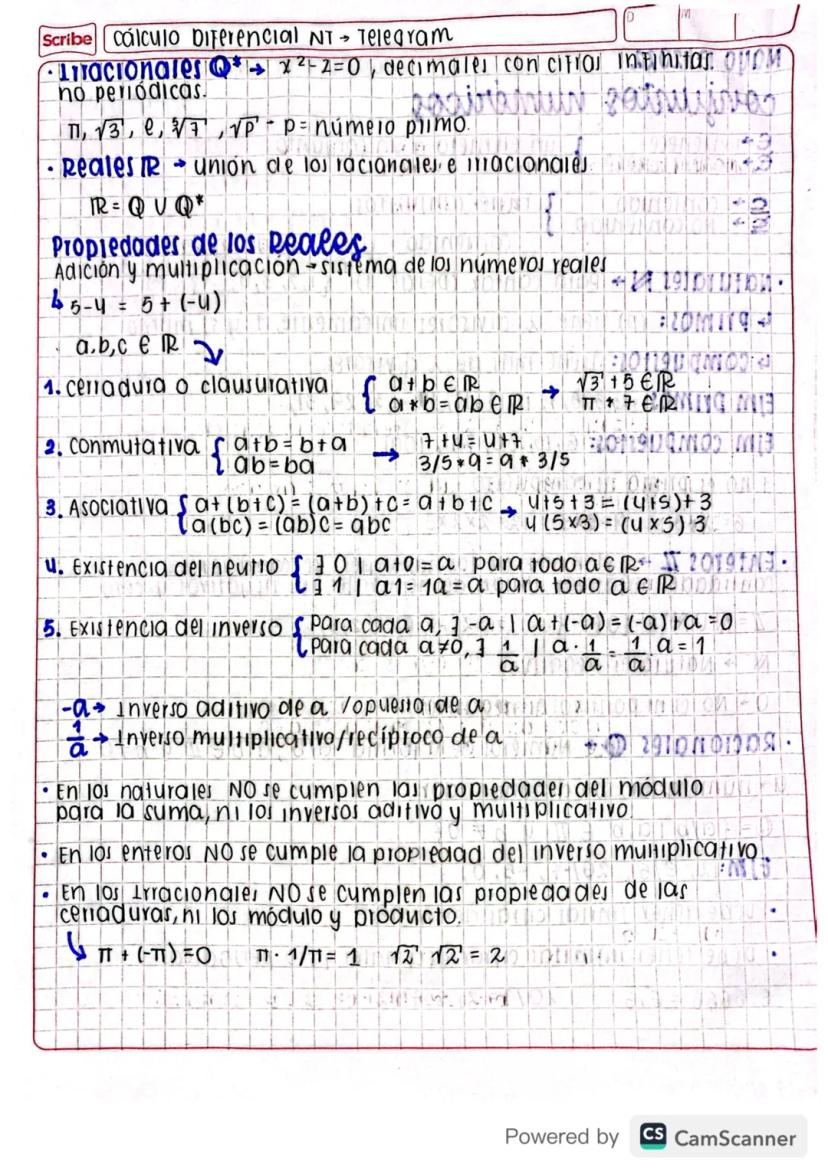 Scribe Cálculo Diferencial NT → Telegram
D M
• Irracionales Q* → x² - 2 = 0, decimales con cifras infinitas
no periódicas.
π, √3, e, ∛7, √p - p = número primo.
• Reales ℝ → unión de los racionales e irracionales
ℝ = Q ∪ Q*
Propiedades de los Reales
Adición y multiplicación → sistema de los números reales
↳ 5-4 = 5 + (-4)
a,b,c ∈ ℝ ↘
1. cerradura o clausurativa { a + b ∈ ℝ → √3 + 5 ∈ ℝ
a * b = ab ∈ ℝ π * 7 ∈ ℝ
2. Conmutativa { a+b = b+a → 7+4 = 4+7
ab = ba 3/5 * 9 = 9 * 3/5
3. Asociativa { a+(b+c) = (a+b)+c = a+b+c → 4+5+3 = (4+5)+3
a(bc) = (ab)c = abc 4(5x3) = (4x5)3
4. Existencia del neutro { ∃ 0 | a+0 = a para todo a ∈ ℝ
∃ 1 | a1 = 1a = a para todo a ∈ ℝ
5. Existencia del inverso { Para cada a, ∃ -a | a + (-a) = (-a) + a = 0
Para cada a≠0, ∃ 1/a | a · 1/a = 1/a a = 1
-a → Inverso aditivo de a /opuesto de a
1/a → Inverso multiplicativo/recíproco de a
• En los naturales NO se cumplen las propiedades del módulo
para la suma, ni los inversos aditivo y multiplicativo.
• En los enteros NO se cumple la propiedad del inverso multiplicativo.
• En los Irracionales NO se cumplen las propiedades de las
cerraduras, ni los módulo y producto.
↳ π + (-π) = 0 π · 1/π = 1 √2 √2 = 2
Powered by CS CamScanner